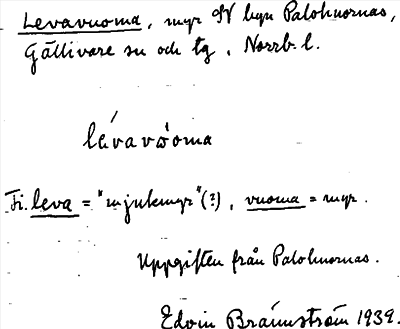 Levavuoma, myr N byn Palohuornas,
Gällivare sn och tg, Norrb. l.
lévavὼoma
Fi. leva = "mjukmyr" (?), vuoma = myr.
Uppgiften från Palohuornas.
Edvin Brännström 1939.